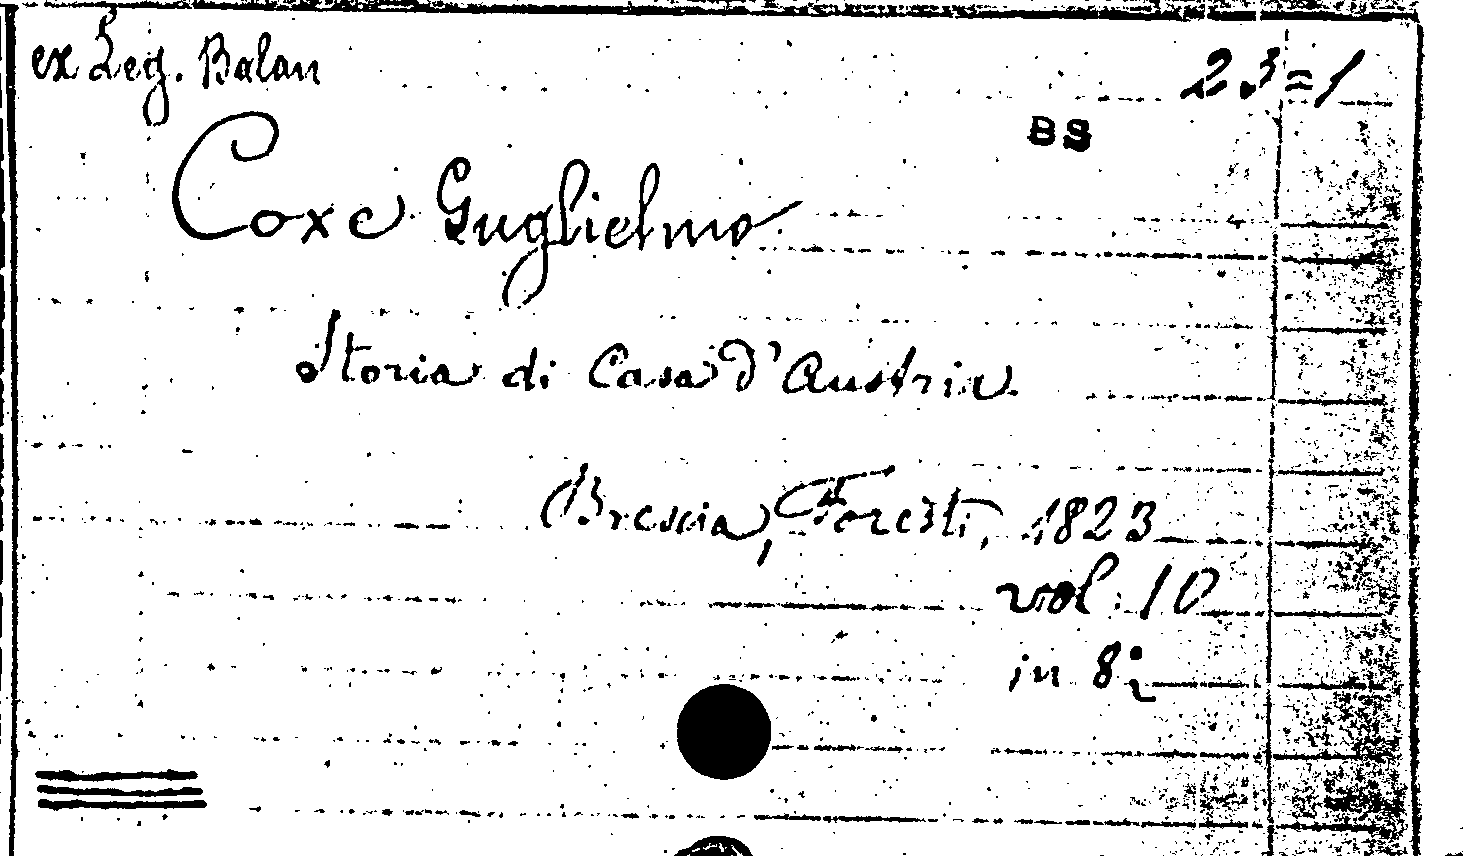 ex Leg. Balan
23=1
BS
Coxe Guglielmo
Storia di Casa d'Austria
Brescia, Foresti, 1823
vol. 10
in 8°